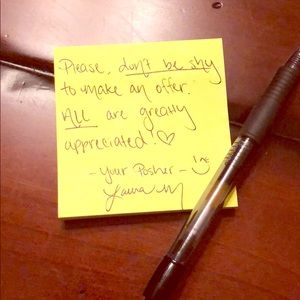 Please, don't be shy
to make an offer.
ALL are greatly
appreciated! ♡
- Your Posher -